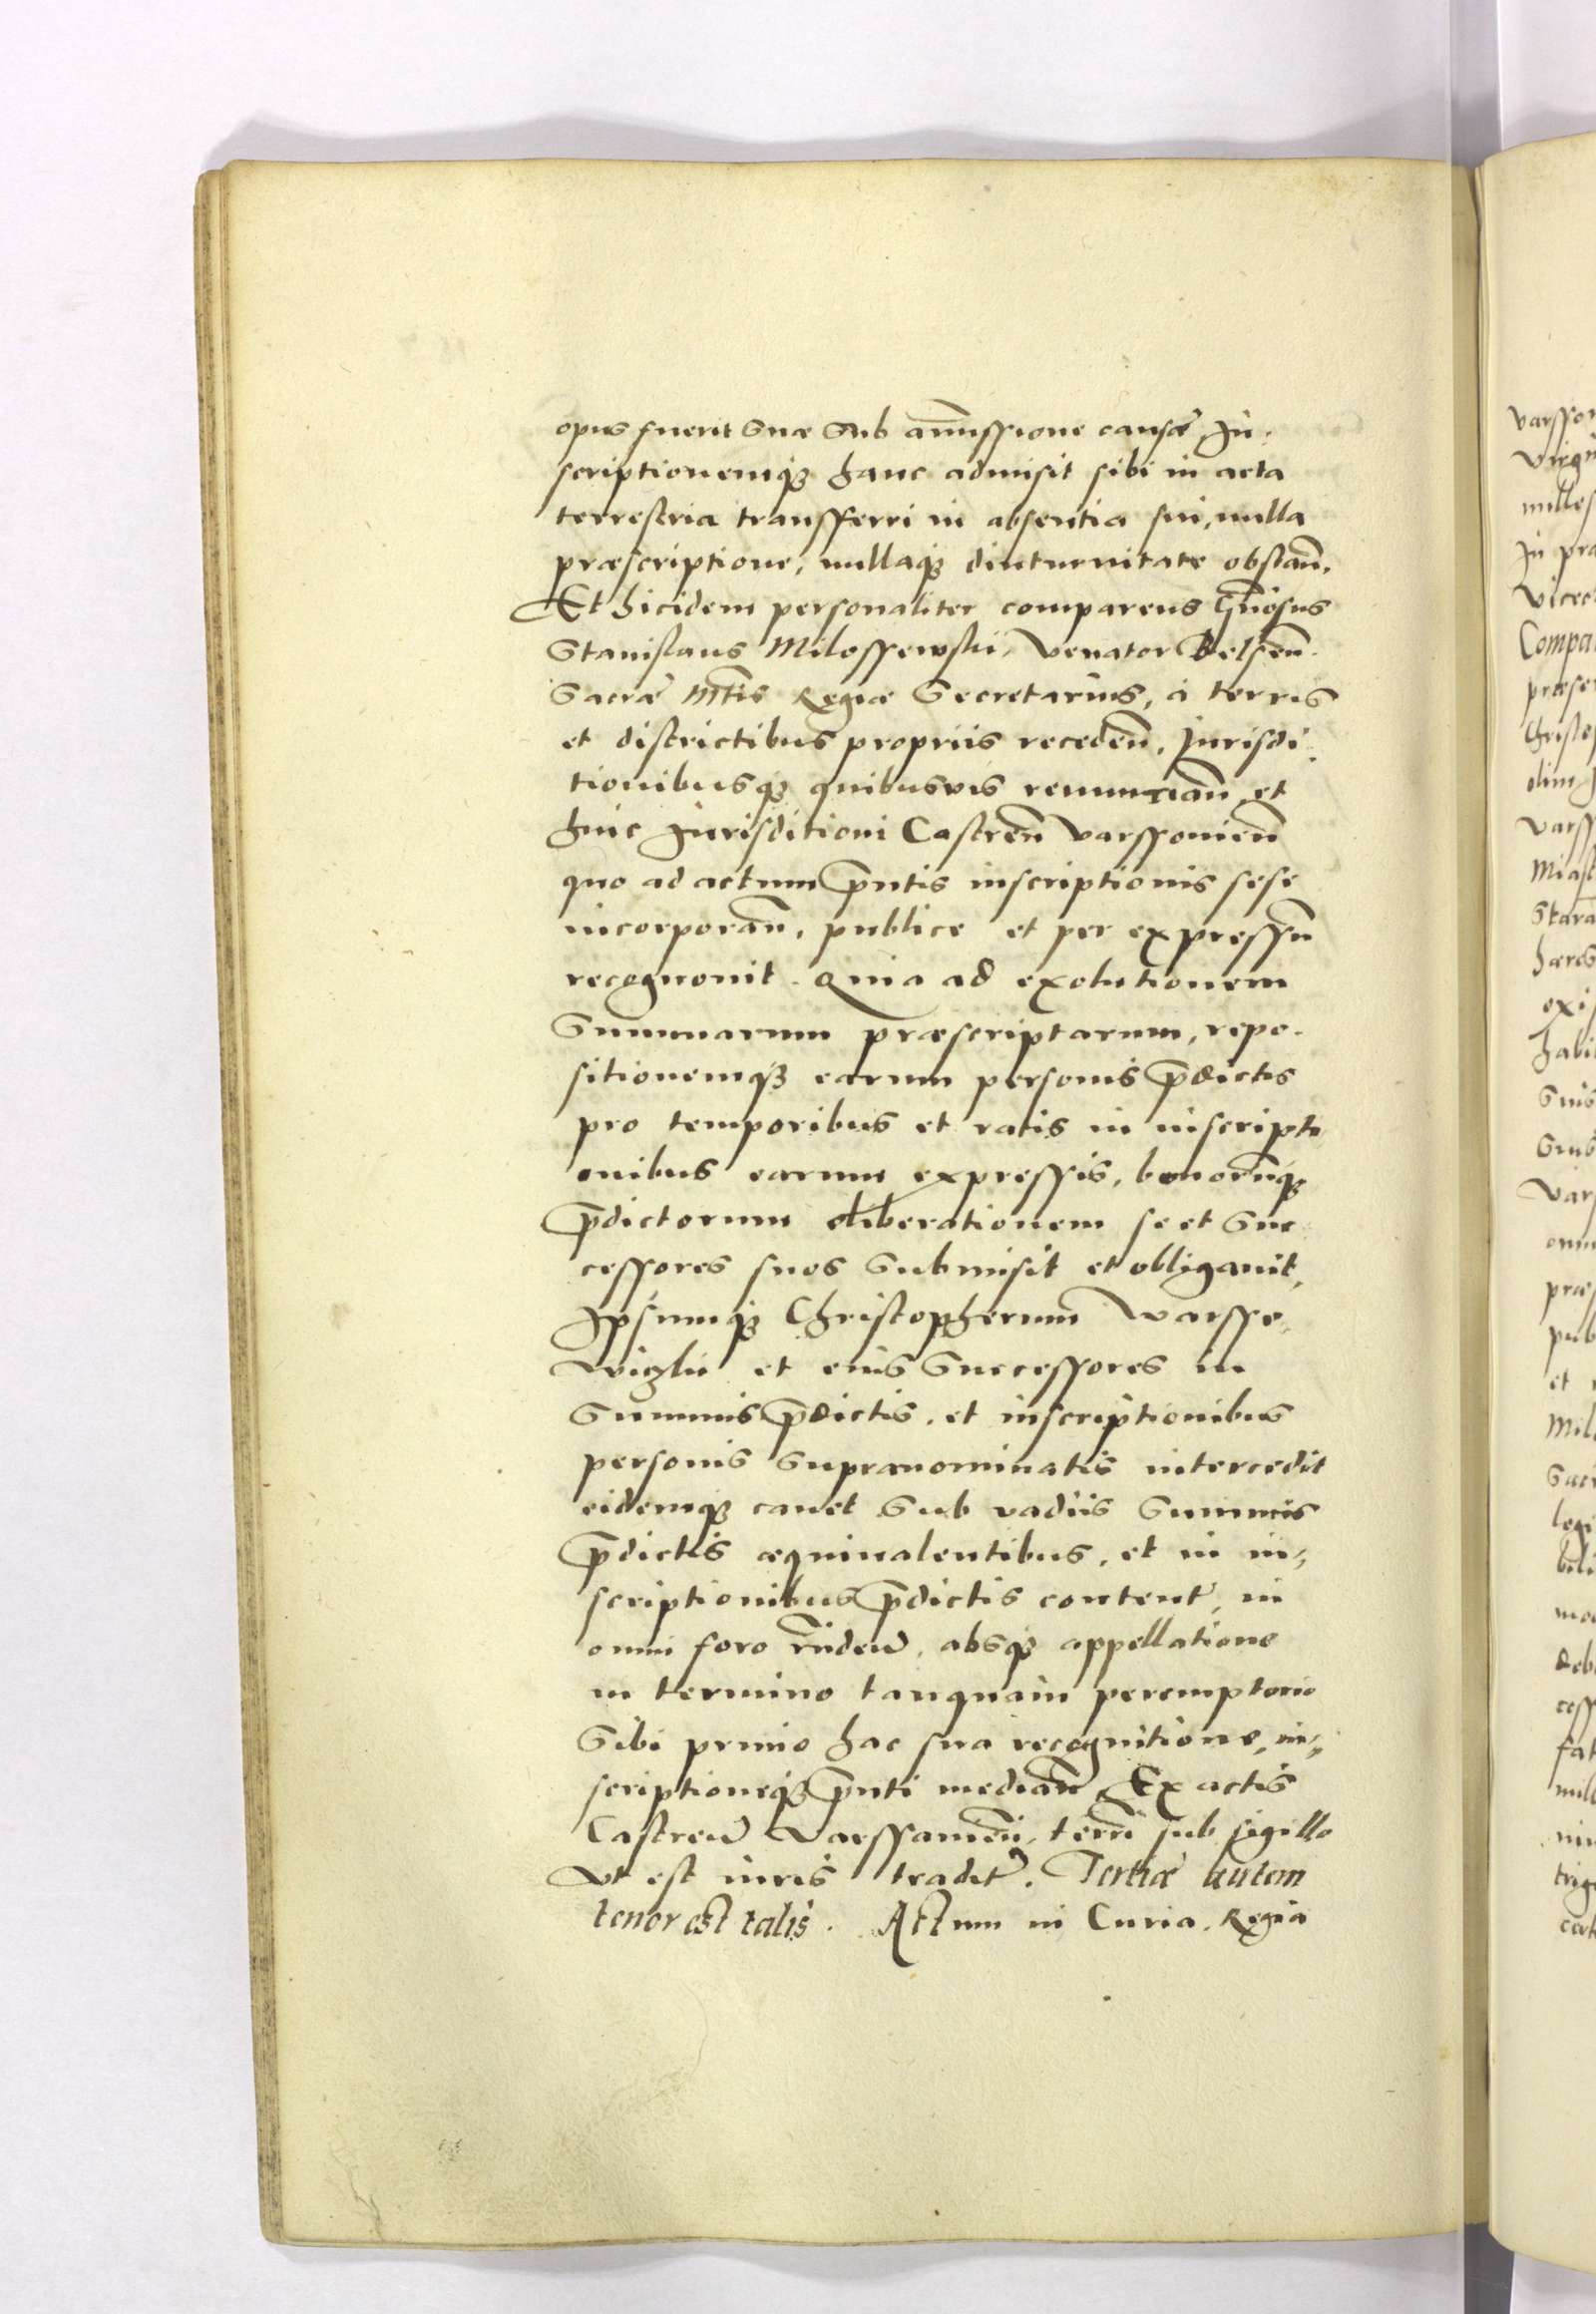 opus fuerit suæ sub amissione causæ. In-
scriptionemq̃ hanc admisit sibi in acta
terrestria transfferri in absentia sui, nulla
præscriptione, nullaq̃ diuturnitate obstan̄.
Et hicidem personaliter comparens Gn̄osus
Stanislaus Milossewski, Venator Belsen̄.
Sacræ Mtis Regiæ Secretarius, à terris
et districtibus propriis receden̄. Jurisdi-
tionibusq̃ quibusvis renuntian̄, et
huic Jurisditioni Castren̄ Varssovien̄
quo ad actum pn̄tis inscriptionis sese
incorporan̄, publice et per expressu̅
recognovit. Quia ad exolutionem
Summarum præscriptarum, repo-
sitionemq̃ earum personis p̄dictis
pro temporibus et ratis in inscripti
onibus earum expressis, bonoru̅q̃
p̄dictorum oliberationem se et suc
cessores suos submisit et obligavit,
Ipsumq̃ Christopherum Warsse-
wizki et eius successores in
Summis p̄dictis, et inscriptionibus
personis supranominatis intercedit
eidemq̃ cavet sub vadiis Summis
p̄dictis æquivalentibus, et in in-
scriptionibus p̄dictis content, in
omni foro rn̄dend, absq̃ appellatione
in termino tanquam peremptorio
Sibi primo hac sua recognitione, in-
scriptioneq̃ pn̄ti median̄. Ex actis
Castren̄ Varssavien̄, terrn̄ sub sigillo
Ut est iuris tradit. Tertiæ autem
tenor est talis. Actum in Curia Regia
varsso
Virgi
milles
In præ
Vicec
Compa
præse
Christo
olim
Varss
Miast
Stara
hæres
exi
habi
Suis
Sub
Var
omn
præ
pub
et
Mil
Sacr
legi
bili
mo
deb
cess
fat
mil
nin
trig